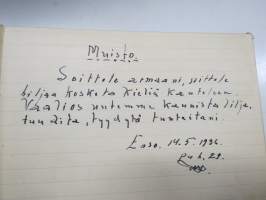 Muisto.
Soittele armaani, soittele
hiljaa kosketa kieliä kanteleen.
Vaalios untemme kaunista lilja,
tuudita, tyydytä tunteitani.
Enso. 14.5.1936.